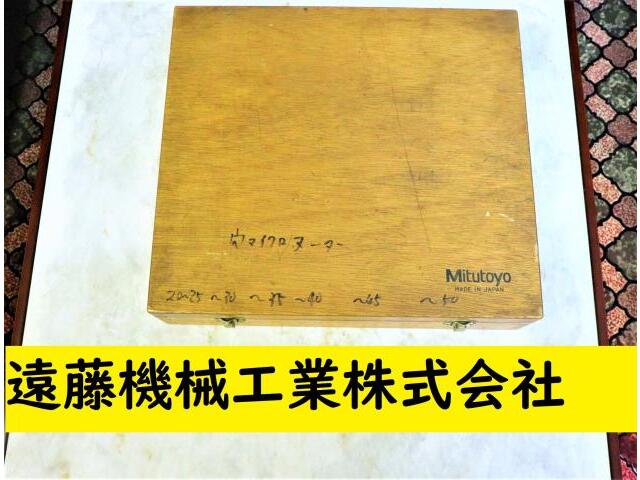 穴マイクロメーター
Mitutoyo
MADE IN JAPAN
20~25 ~30 ~35 ~40 ~45 ~50
遠藤機械工業株式会社